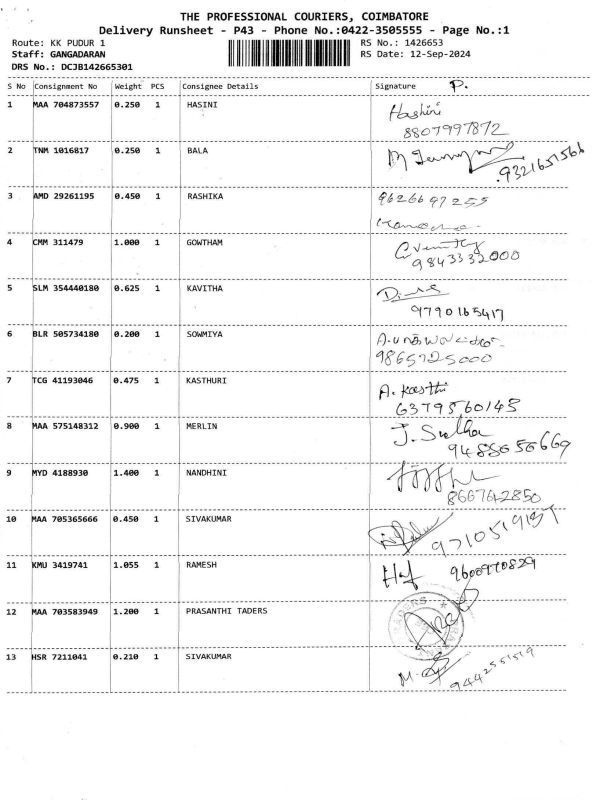 THE PROFESSIONAL COURIERS, COIMBATORE
Delivery Runsheet - P43 - Phone No.:0422-3505555 - Page No.:1
Route: KK PUDUR 1 RS No.: 1426653
Staff: GANGADARAN RS Date: 12-Sep-2024
DRS No.: DCJB142665301
S No Consignment No Weight PCS Consignee Details Signature P.
1 MAA 704873557 0.250 1 HASINI Hashini
8807997872
2 TNM 1016817 0.250 1 BALA
9321651566
3 AMD 29261195 0.450 1 RASHIKA 9626697255
4 CMM 311479 1.000 1 GOWTHAM
9843332000
5 SLM 354440180 0.625 1 KAVITHA
9790165417
6 BLR 505734180 0.200 1 SOWMIYA
9865725000
7 TCG 41193046 0.475 1 KASTHURI A. Kasthi
6379560145
8 MAA 575148312 0.900 1 MERLIN J. Sudha
9488656669
9 MYD 4188930 1.400 1 NANDHINI
8667642850
10 MAA 705365666 0.450 1 SIVAKUMAR
11 KMU 3419741 1.055 1 RAMESH 9600970829
12 MAA 703583949 1.200 1 PRASANTHI TADERS
13 HSR 7211041 0.210 1 SIVAKUMAR
9442551519